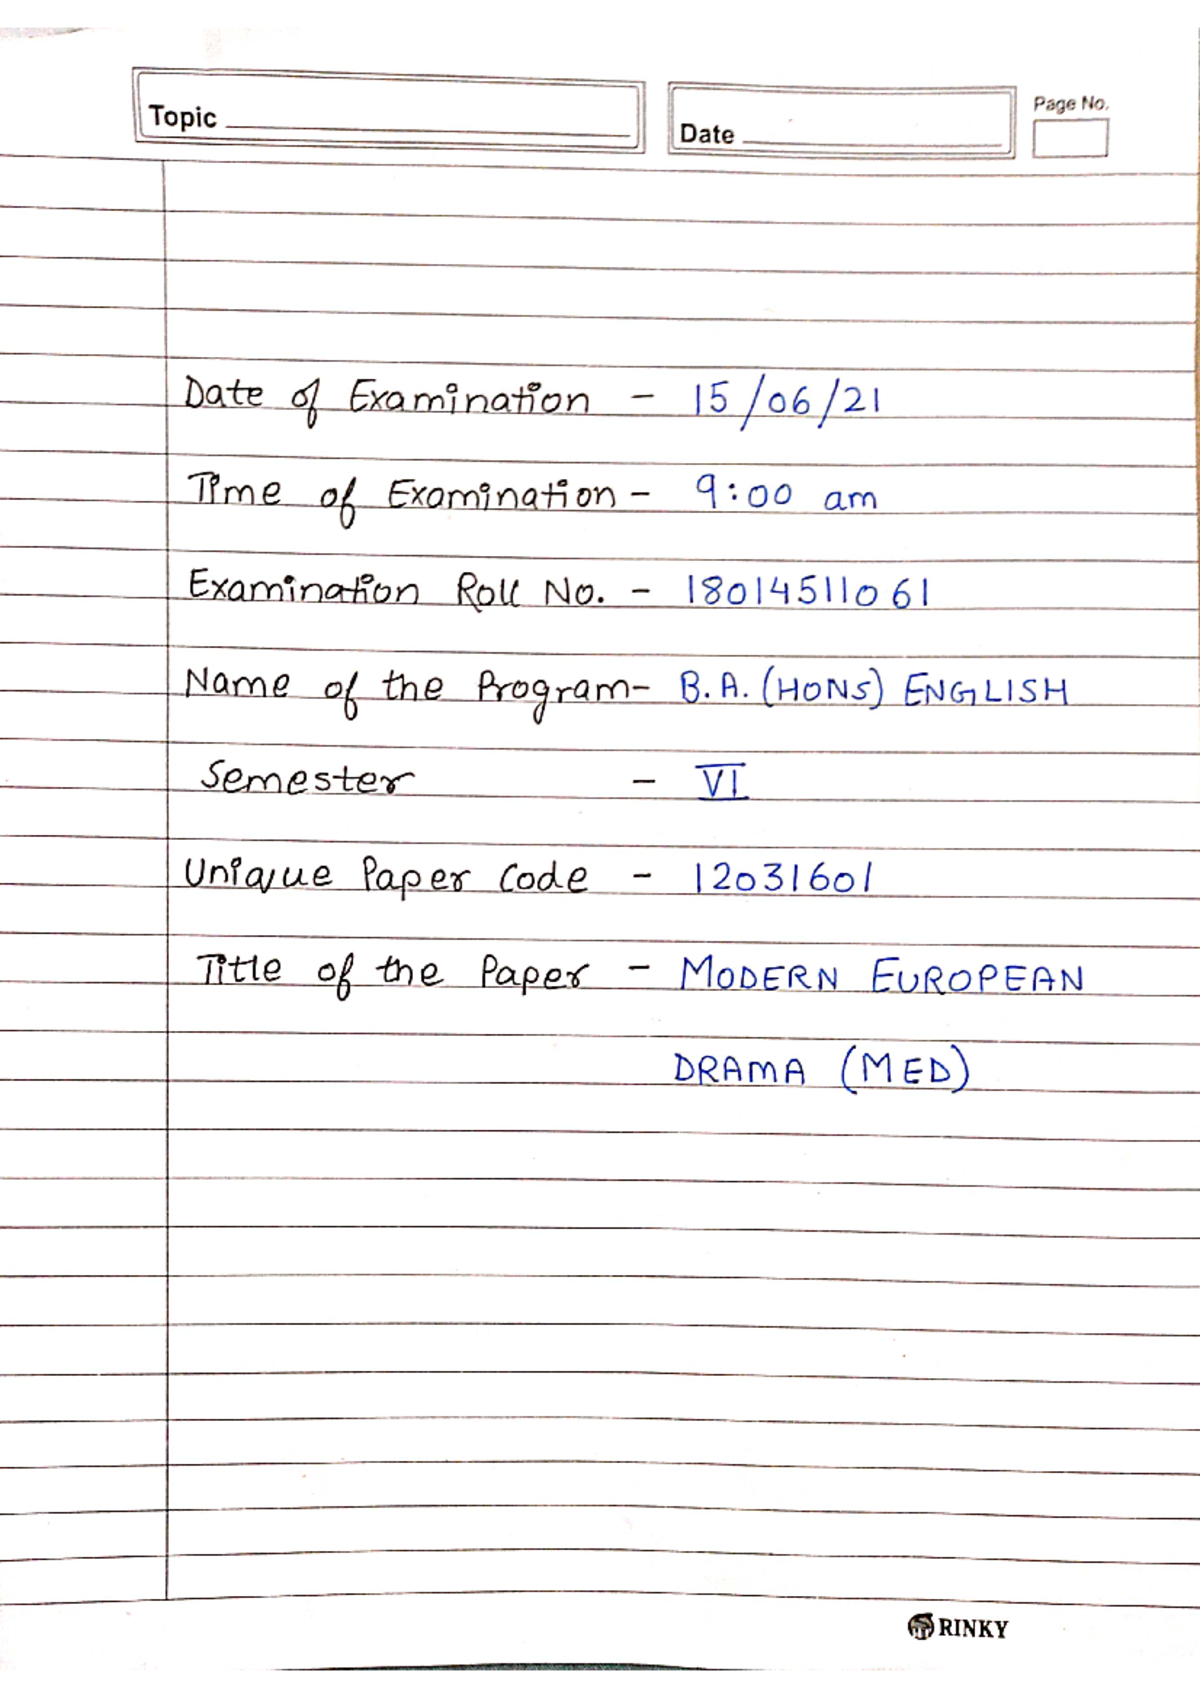 Topic
Date
Page No.
Date of Examination - 15/06/21
Time of Examination - 9:00 am
Examination Roll No. - 18014511061
Name of the Program - B.A. (HONS) ENGLISH
Semester - VI
Unique Paper Code - 12031601
Title of the Paper - MODERN EUROPEAN
DRAMA (MED)
RINKY